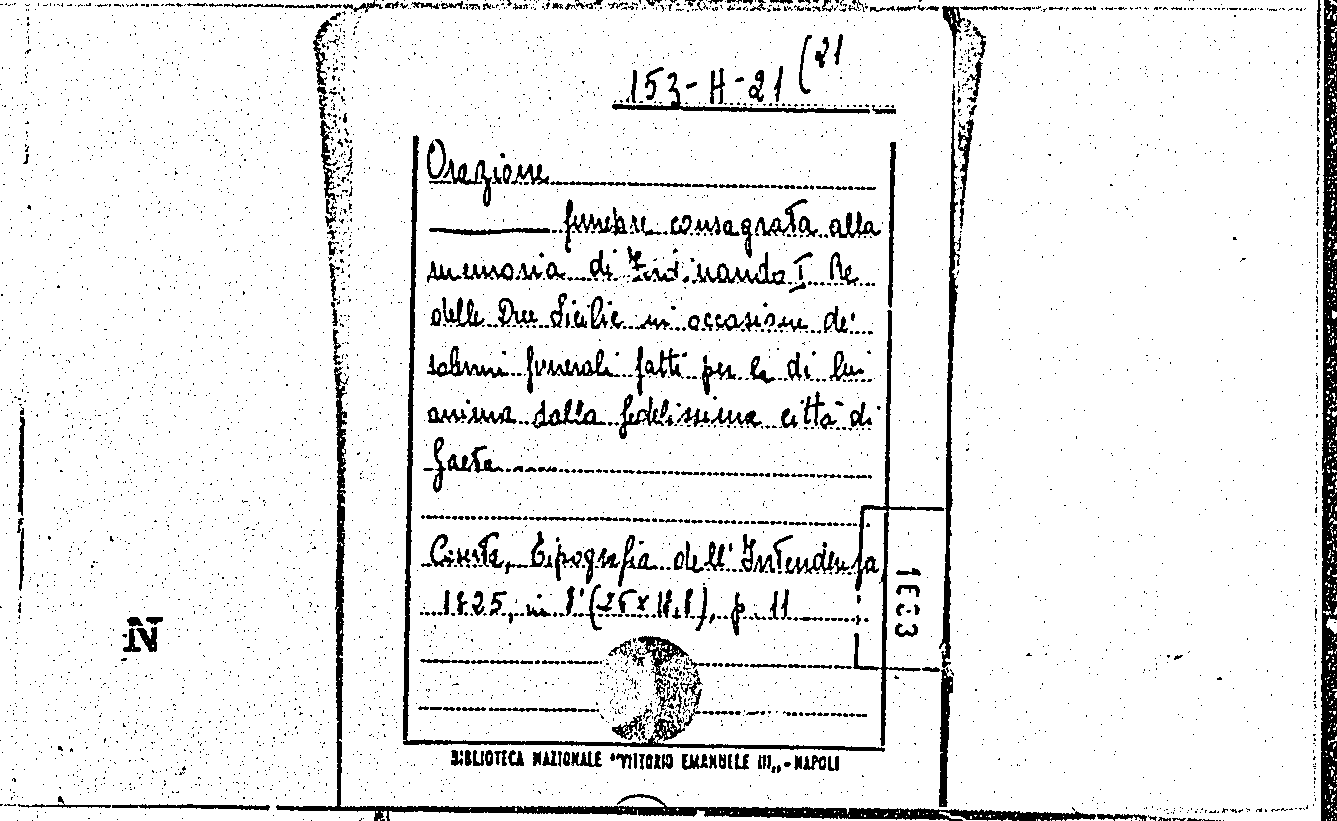 153-H-21 (21
Orazione
funebre consagrata alla
memoria di Ferdinando I Re
delle Due Sicilie in occasione de'
solenni funerali fatti per la di lui
anima dalla fedelissima città di
Gaeta
Caserta, Tipografia dell'Intendenza,
1825, in 8° (26 x 18,8), p. 11
1E33
N
BIBLIOTECA NAZIONALE "VITTORIO EMANUELE III„ - NAPOLI